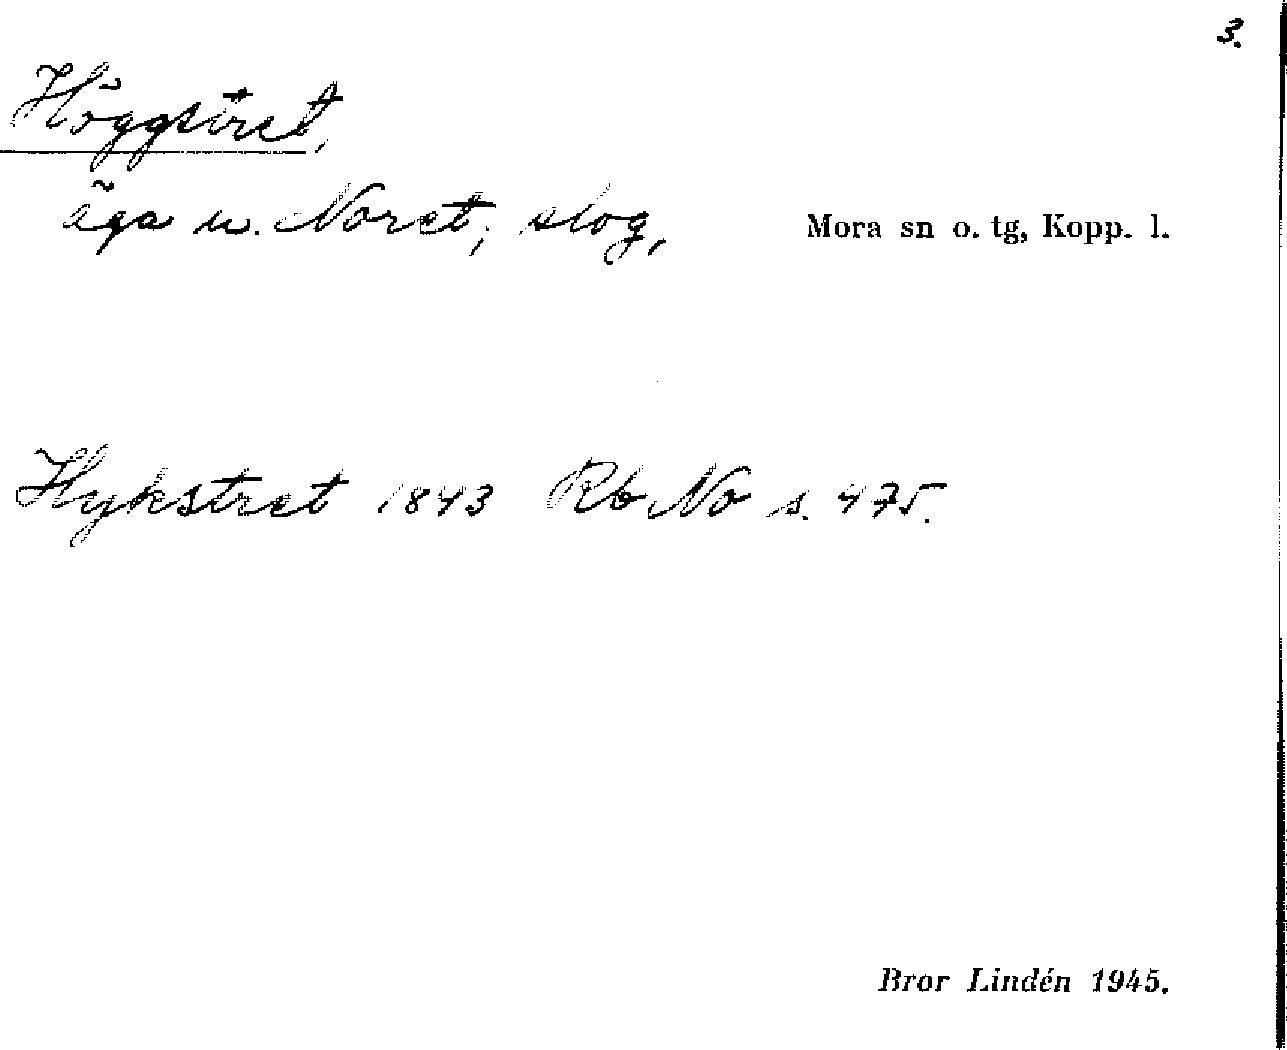 3.
Höggstret,
äga u. Noret; slog,
Mora sn o. tg, Kopp. l.
Hykstret 1843 Rb No s. 475.
Bror Lindén 1945.